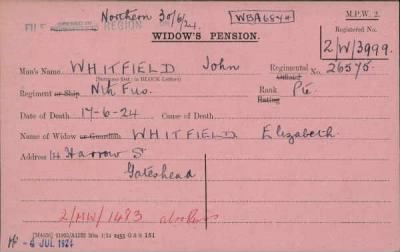 Northern 30/6/24.
WBA6544
M.P.W. 2.
FILE REGION
WIDOW'S PENSION.
Registered No.
2/W/3999.
Man's Name WHITFIELD John
(Surname first: in BLOCK Letters)
Regimental No. 26575.
Official
Regiment or Ship Nth Fus.
Rank Pte.
Rating
Date of Death 17-6-24 Cause of Death
Name of Widow or Guardian WHITFIELD Elizabeth.
Address 14 Harrow St
Gateshead
2/MW/1483
- 4 JUL 1924